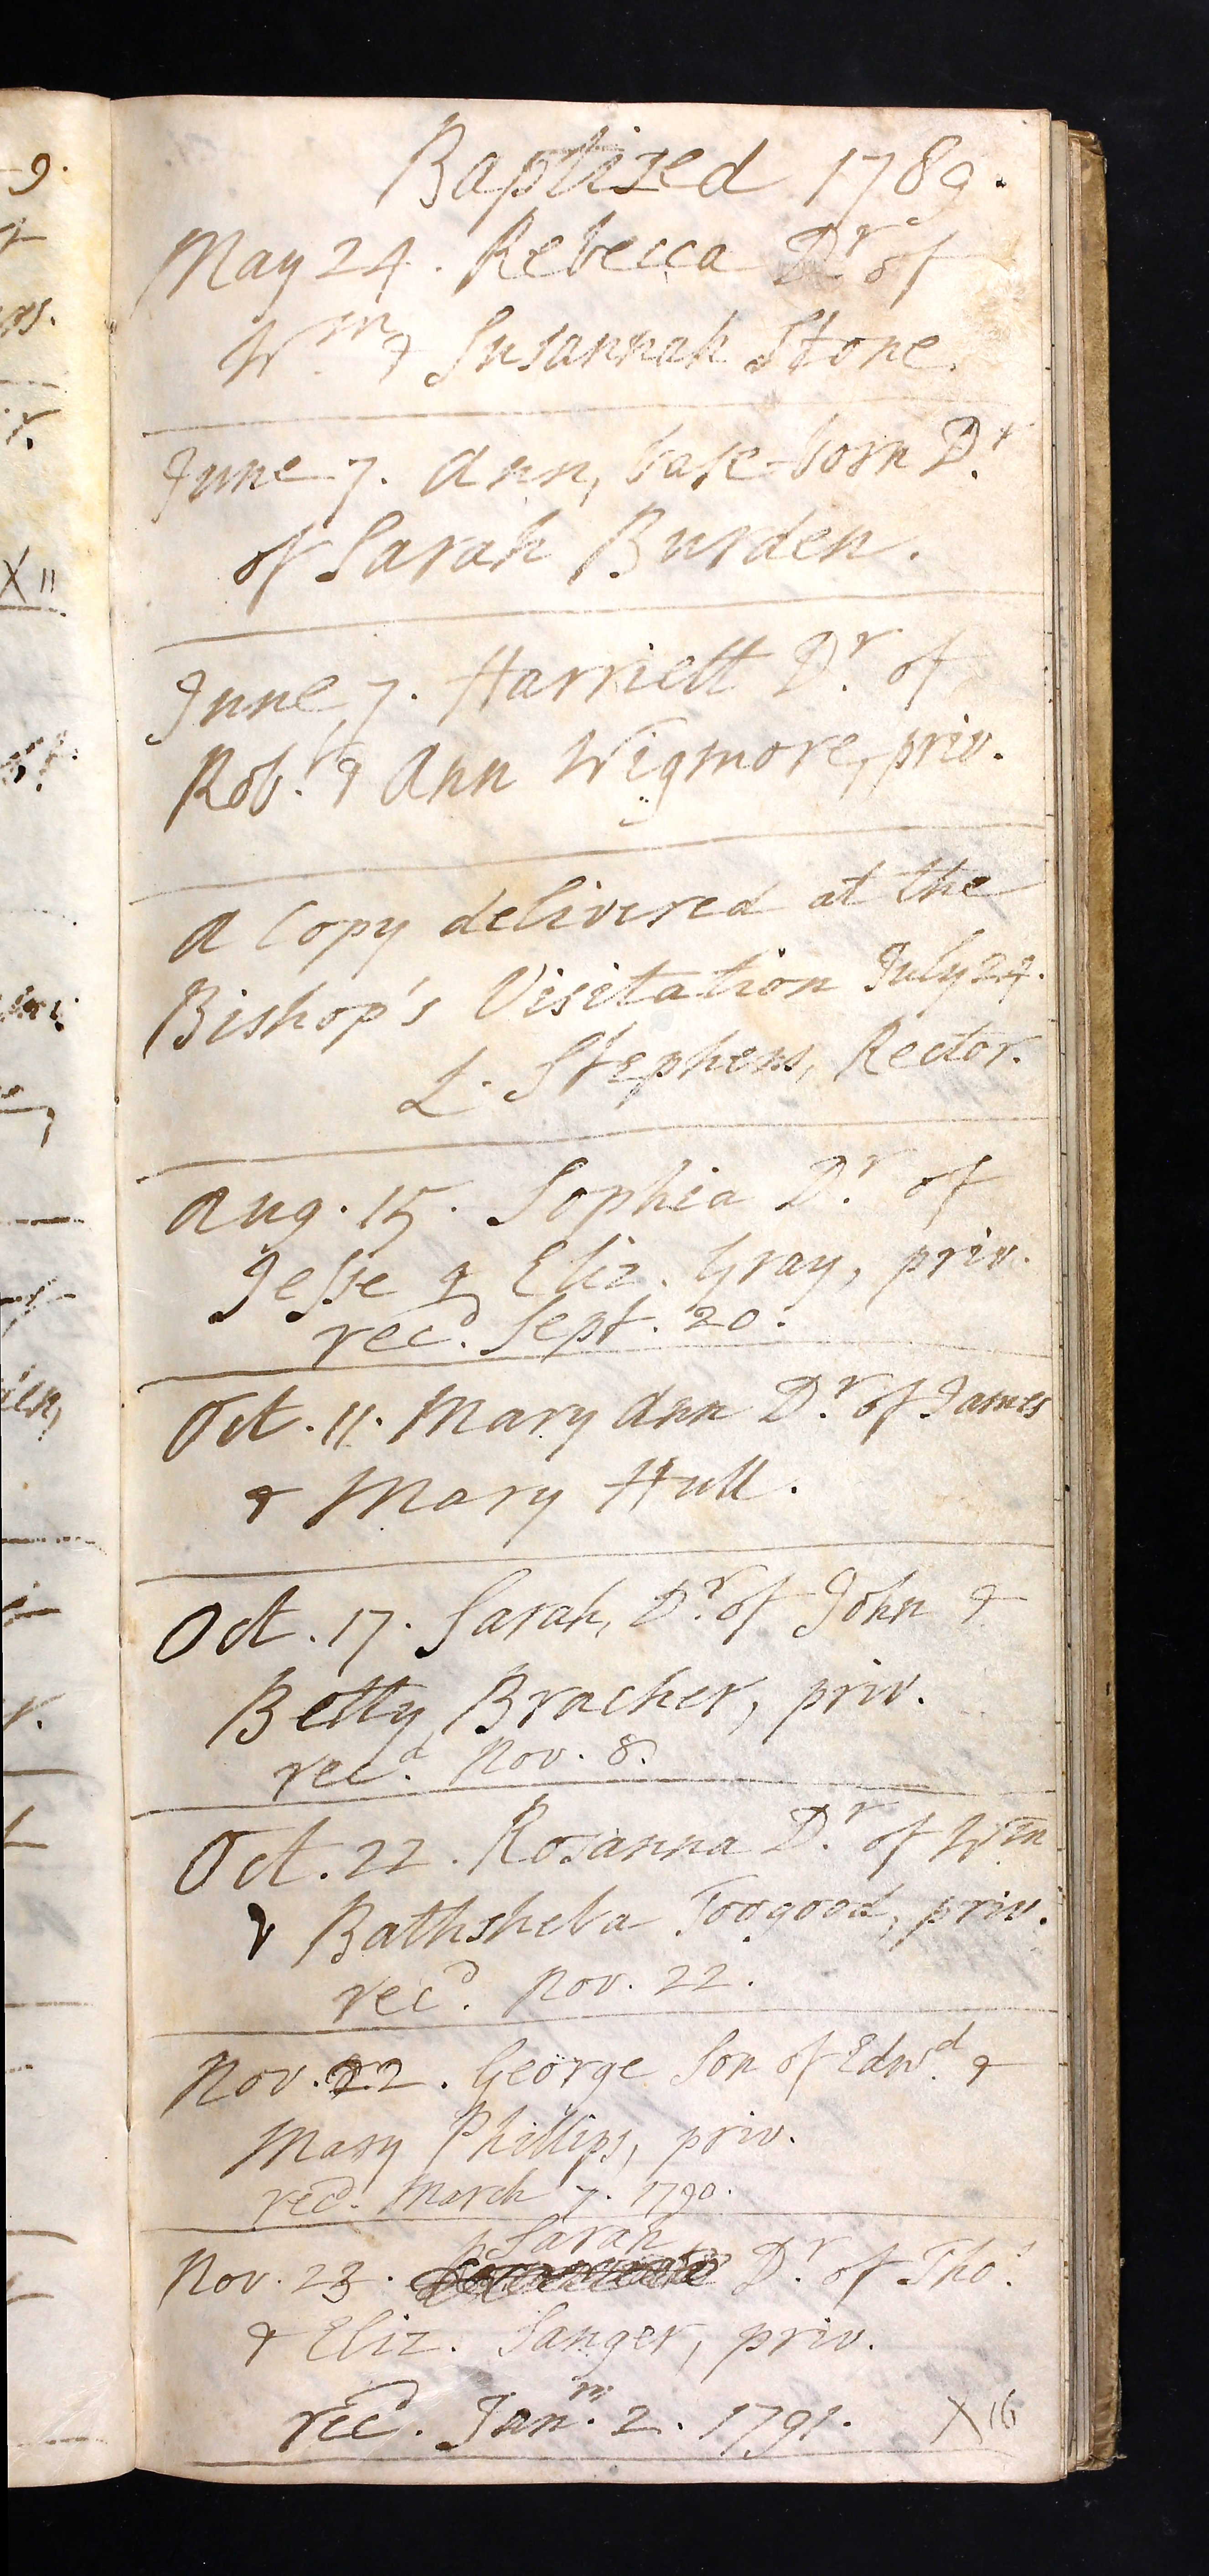 Baptised 1789.
May 24. Rebecca Dr. of
Wm. & Susannah Stone.
June 7. Ann, base-born Dr.
of Sarah Burden.
June 7. Harriett Dr. of
Robt. & Ann Wigmore, priv.
A Copy delivered at the
Bishop's Visitation July
L. Stephens, Rector.
Aug. 15. Sophia Dr. of
Jesse & Eliz. Gray, priv.
recd. Sept. 20.
Oct. 11. Mary Ann Dr. of James
& Mary Hull.
Oct. 17. Sarah, Dr. of John &
Betty Bracher, priv.
recd. Nov. 8.
Oct. 22. Rosanna Dr. of Wm
& Bathsheba Toogood, priv.
recd. Nov. 22.
Nov. 22. George Son of Edwd. &
Mary Phillips, priv.
recd. March 7. 1790.
Sarah
Nov. 23. Dr. of Thos.
& Eliz. Sanger, priv.
recd. Jany. 2. 1791. X 16